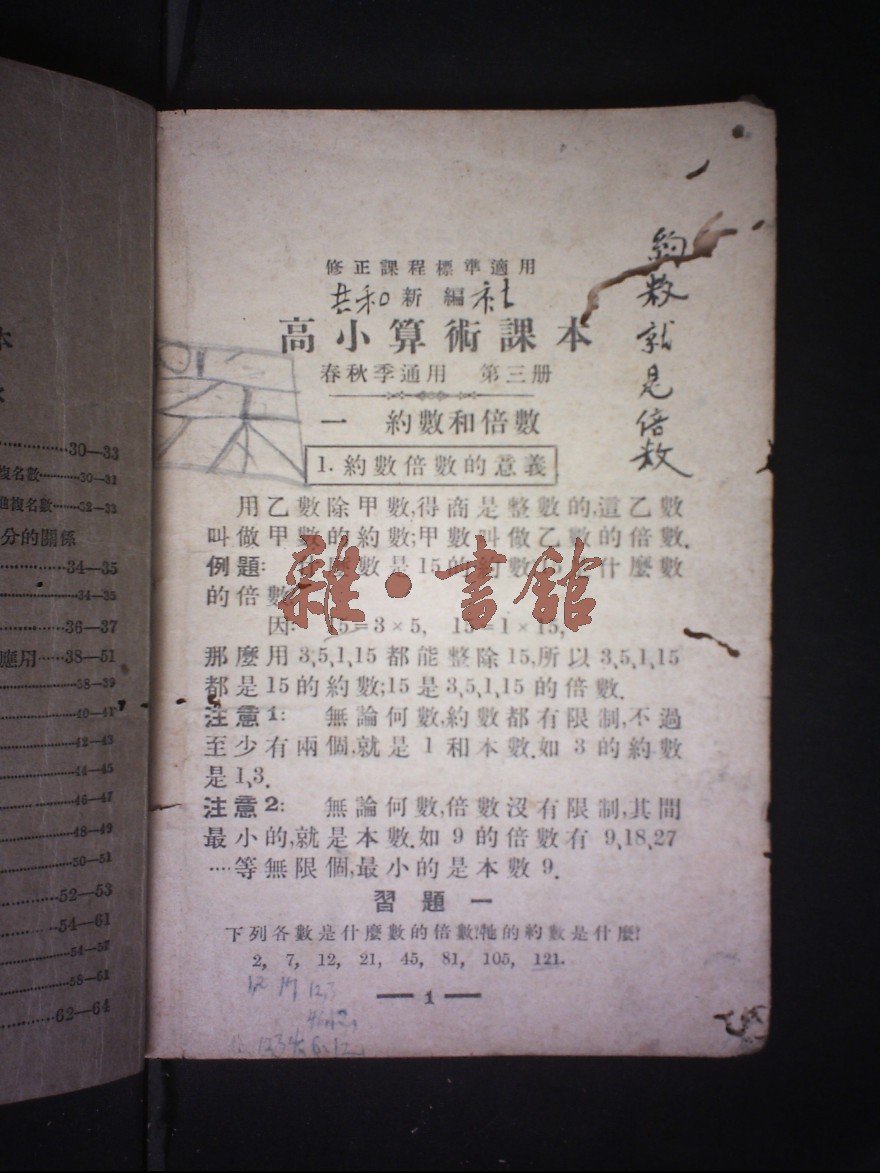 本
30—33
複名數……30—31
進複名數……32—33
分的關係
34—35
34—35
36—37
應用……38—51
38—39
40—41
42—43
44—45
46—47
48—49
50—51
52—53
54—61
54—57
58—61
62—64
修正課程標準適用
共和新編社
高小算術課本
春秋季通用 第三册
一 約數和倍數
1. 約數倍數的意義
用乙數除甲數,得商是整數的,這乙數
叫做甲數的約數;甲數叫做乙數的倍數.
例題: 什麼數是15的約數 什麼數
的倍數
因: 15=3×5, 15=1×15,
那麼用3,5,1,15都能整除15,所以3,5,1,15
都是15的約數;15是3,5,1,15的倍數.
注意1: 無論何數,約數都有限制,不過
至少有兩個,就是1和本數.如3的約數
是1,3.
注意2: 無論何數,倍數沒有限制,其間
最小的,就是本數.如9的倍數有9,18,27
……等無限個,最小的是本數9.
習題一
下列各數是什麼數的倍數?牠的約數是什麼?
2, 7, 12, 21, 45, 81, 105, 121.
— 1 —
約数就是倍数
雜·書館